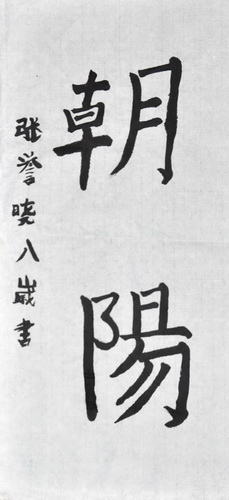 朝陽
张誉晓八歲書